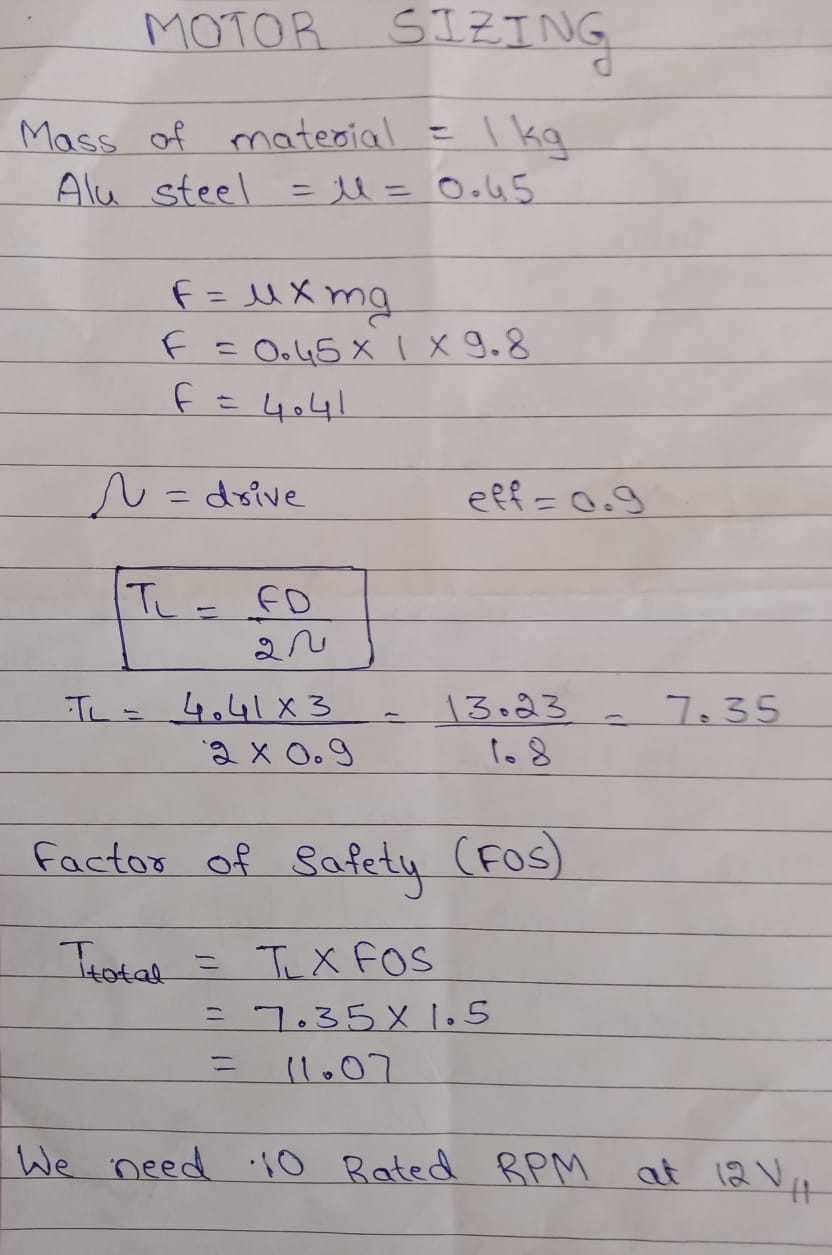 MOTOR SIZING
Mass of material = 1 kg
Alu steel = μ = 0.45
F = μ × mg
F = 0.45 × 1 × 9.8
F = 4.41
η = drive eff = 0.9
TL = FD / 2η
TL = 4.41 × 3 / 2 × 0.9 = 13.23 / 1.8 = 7.35
Factor of Safety (FOS)
Ttotal = TL × FOS
= 7.35 × 1.5
= 11.07
We need 10 Rated RPM at 12V